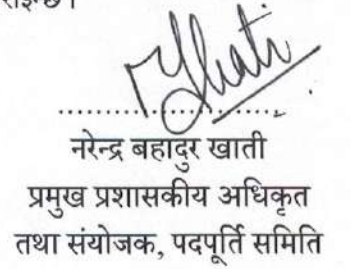 नरेन्द्र बहादुर खाती
प्रमुख प्रशासकीय अधिकृत
तथा संयोजक, पदपूर्ति समिति